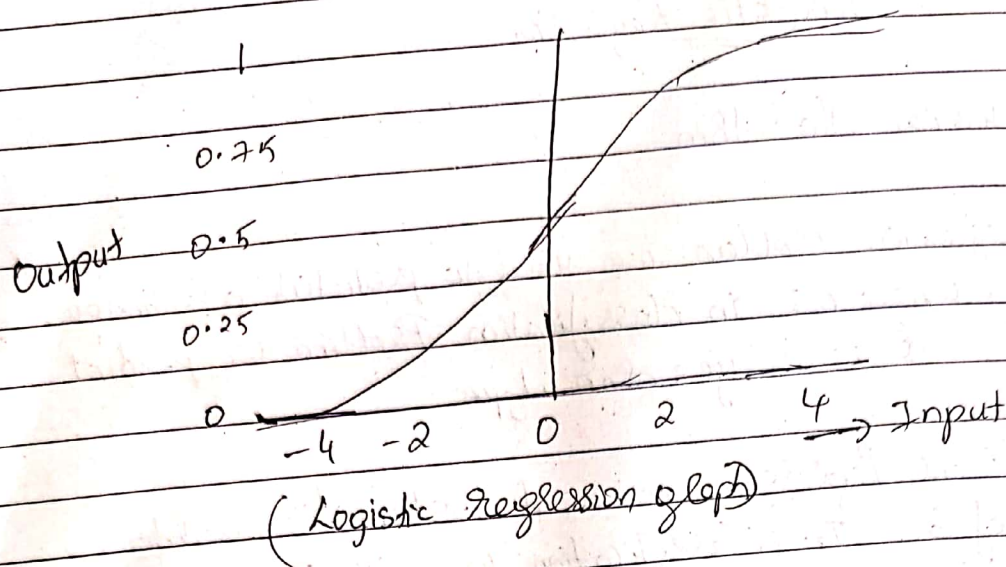 1
0.75
Output 0.5
0.25
0
-4 -2 0 2 4 → Input
(Logistic regression graph)